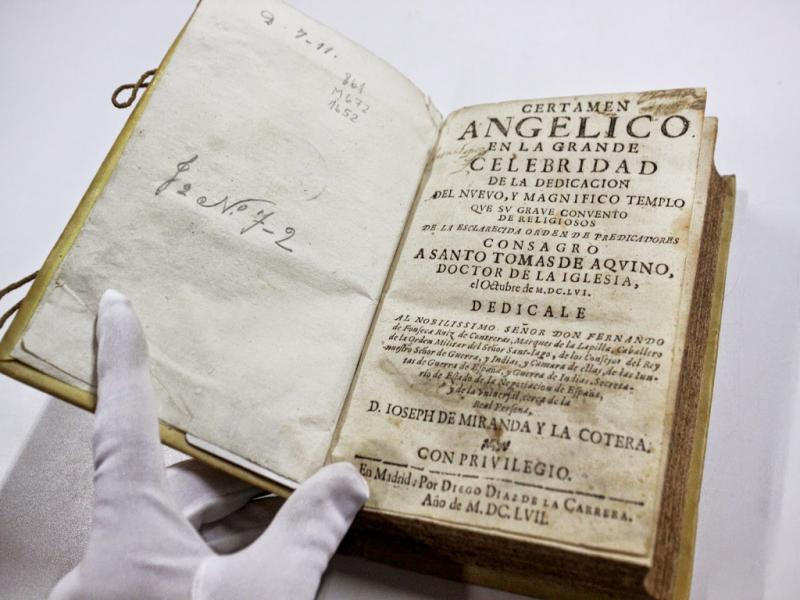 D. 7-11.
861
M672
1652
J 2 Nº 7-2
CERTAMEN
ANGELICO
EN LA GRANDE
CELEBRIDAD
DE LA DEDICACION
DEL NVEVO, Y MAGNIFICO TEMPLO
QUE SV GRAVE CONVENTO
DE RELIGIOSOS
DE LA ESCLARECIDA ORDEN DE PREDICADORES
CONSAGRO
A SANTO TOMAS DE AQVINO,
DOCTOR DE LA IGLESIA,
el Octubre de M.DC.LVI.
DEDICALE
AL NOBILISSIMO SEÑOR DON FERNANDO
de Fonseca Ruiz de Contreras, Marques de la Lapilla, Caballero
de la Orden Militar del Señor Sant-Iago, de los Consejos del Rey
nuestro Señor de Guerra, y Indias, y Camara de ellas, de las Iun-
tas de Guerra de España, y Guerra de Indias, Secreta-
rio de Estado de la Negociacion de España,
y de la Vniversal, cerca de la
Real Persona,
D. IOSEPH DE MIRANDA Y LA COTERA.
CON PRIVILEGIO.
En Madrid: Por DIEGO DIAZ DE LA CARRERA.
Año de M.DC.LVII.